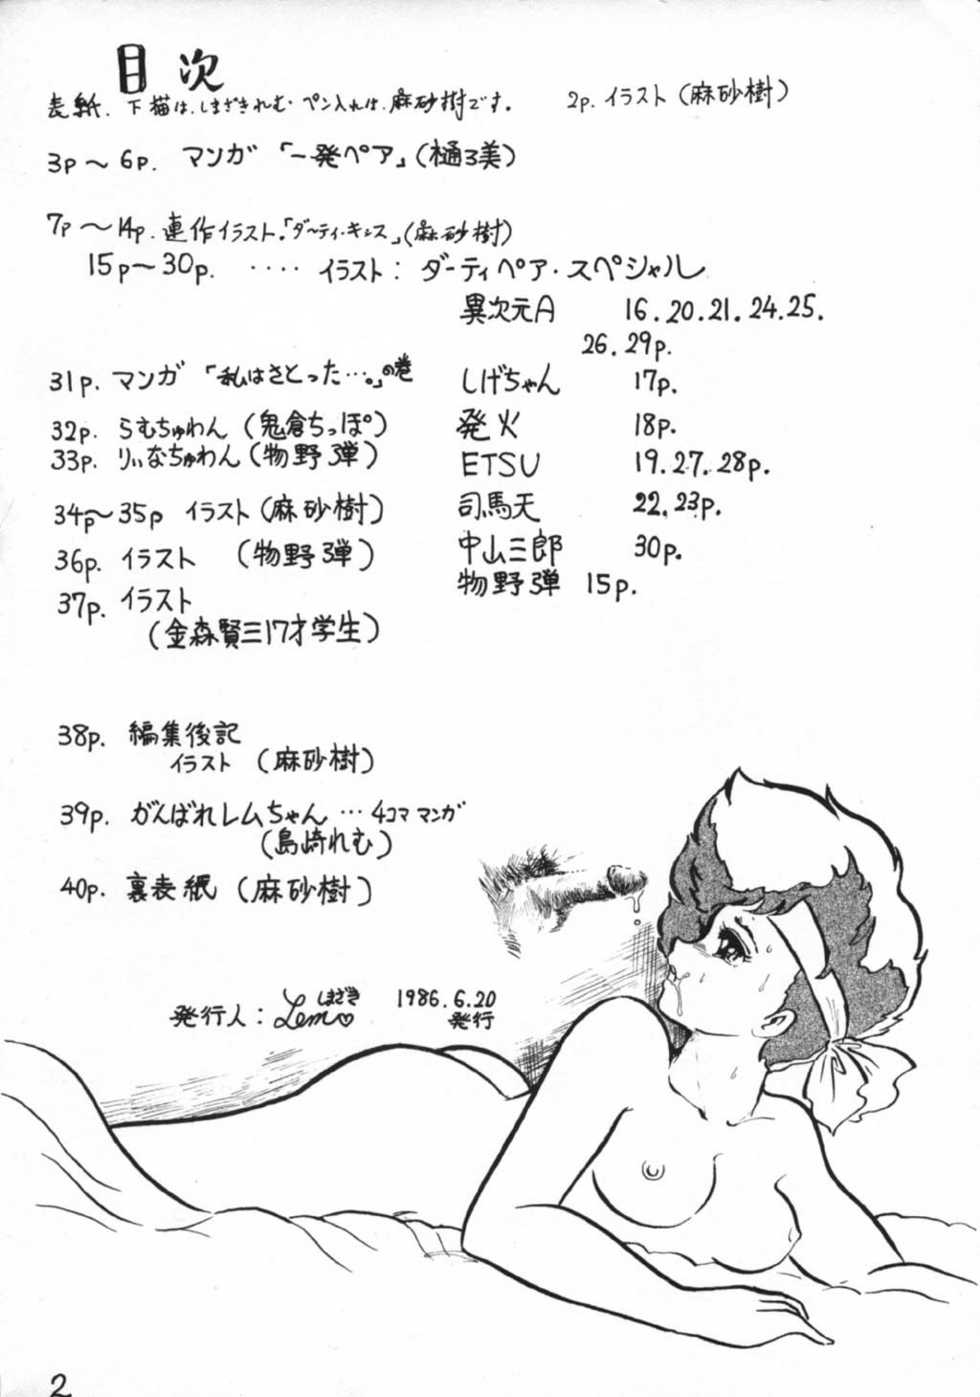 目次
表紙. 下描は、しまざきれむ・ペン入れは、麻砂樹です。 2p. イラスト (麻砂樹)
3p〜6p. マンガ「一発ペア」(樋ろ美)
7p〜14p. 連作イラスト.「ダーティ・キッス」(麻砂樹)
15p〜30p. ‥‥ イラスト: ダーティペア・スペシャル
異次元A 16.20.21.24.25.
26.29p.
しげちゃん 17p.
発火 18p.
ETSU 19.27.28p.
司馬天 22.23p.
中山三郎 30p.
物野弾 15p.
31p. マンガ 「私はさとった…。」の巻
32p. らむちゅわん (鬼倉ちっぽ)
33p. りぃなちゅわん (物野弾)
34p〜35p イラスト (麻砂樹)
36p. イラスト (物野弾)
37p. イラスト
(金森賢三17才学生)
38p. 編集後記
イラスト (麻砂樹)
39p. がんばれレムちゃん … 4コママンガ
(島崎れむ)
40p. 裏表紙 (麻砂樹)
発行人: しまざき Lem♡ 1986.6.20
発行
2